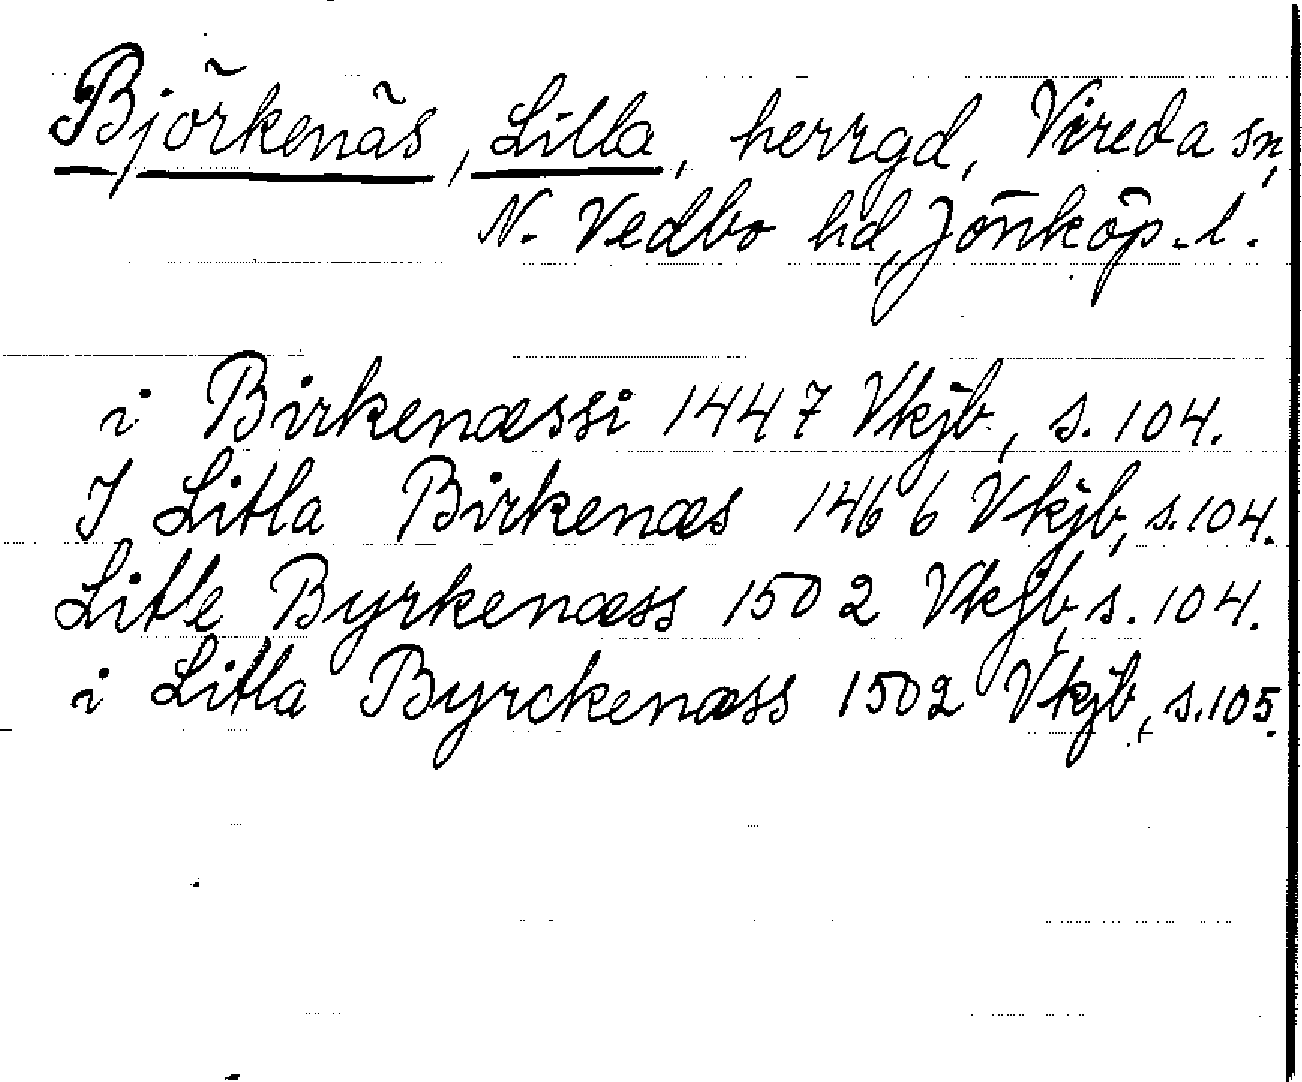 Björkenäs, Lilla, herrgd, Vireda sn,
N. Vedbo hd, Jönköp. l.
i Birkenæssi 1447 Vkjb, s. 104.
I Litla Birkenæs 1466 Vkjb, s. 104.
Litle Byrkenæss 1502 Vkjb, s. 104.
i Litla Byrckenæss 1502 Vkjb, s. 105.